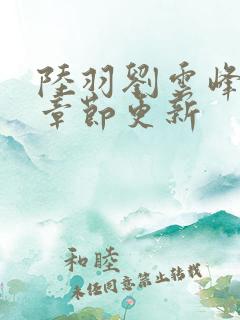 陸羽劉雲峰
章節更新
和睦
未经同意禁止转载